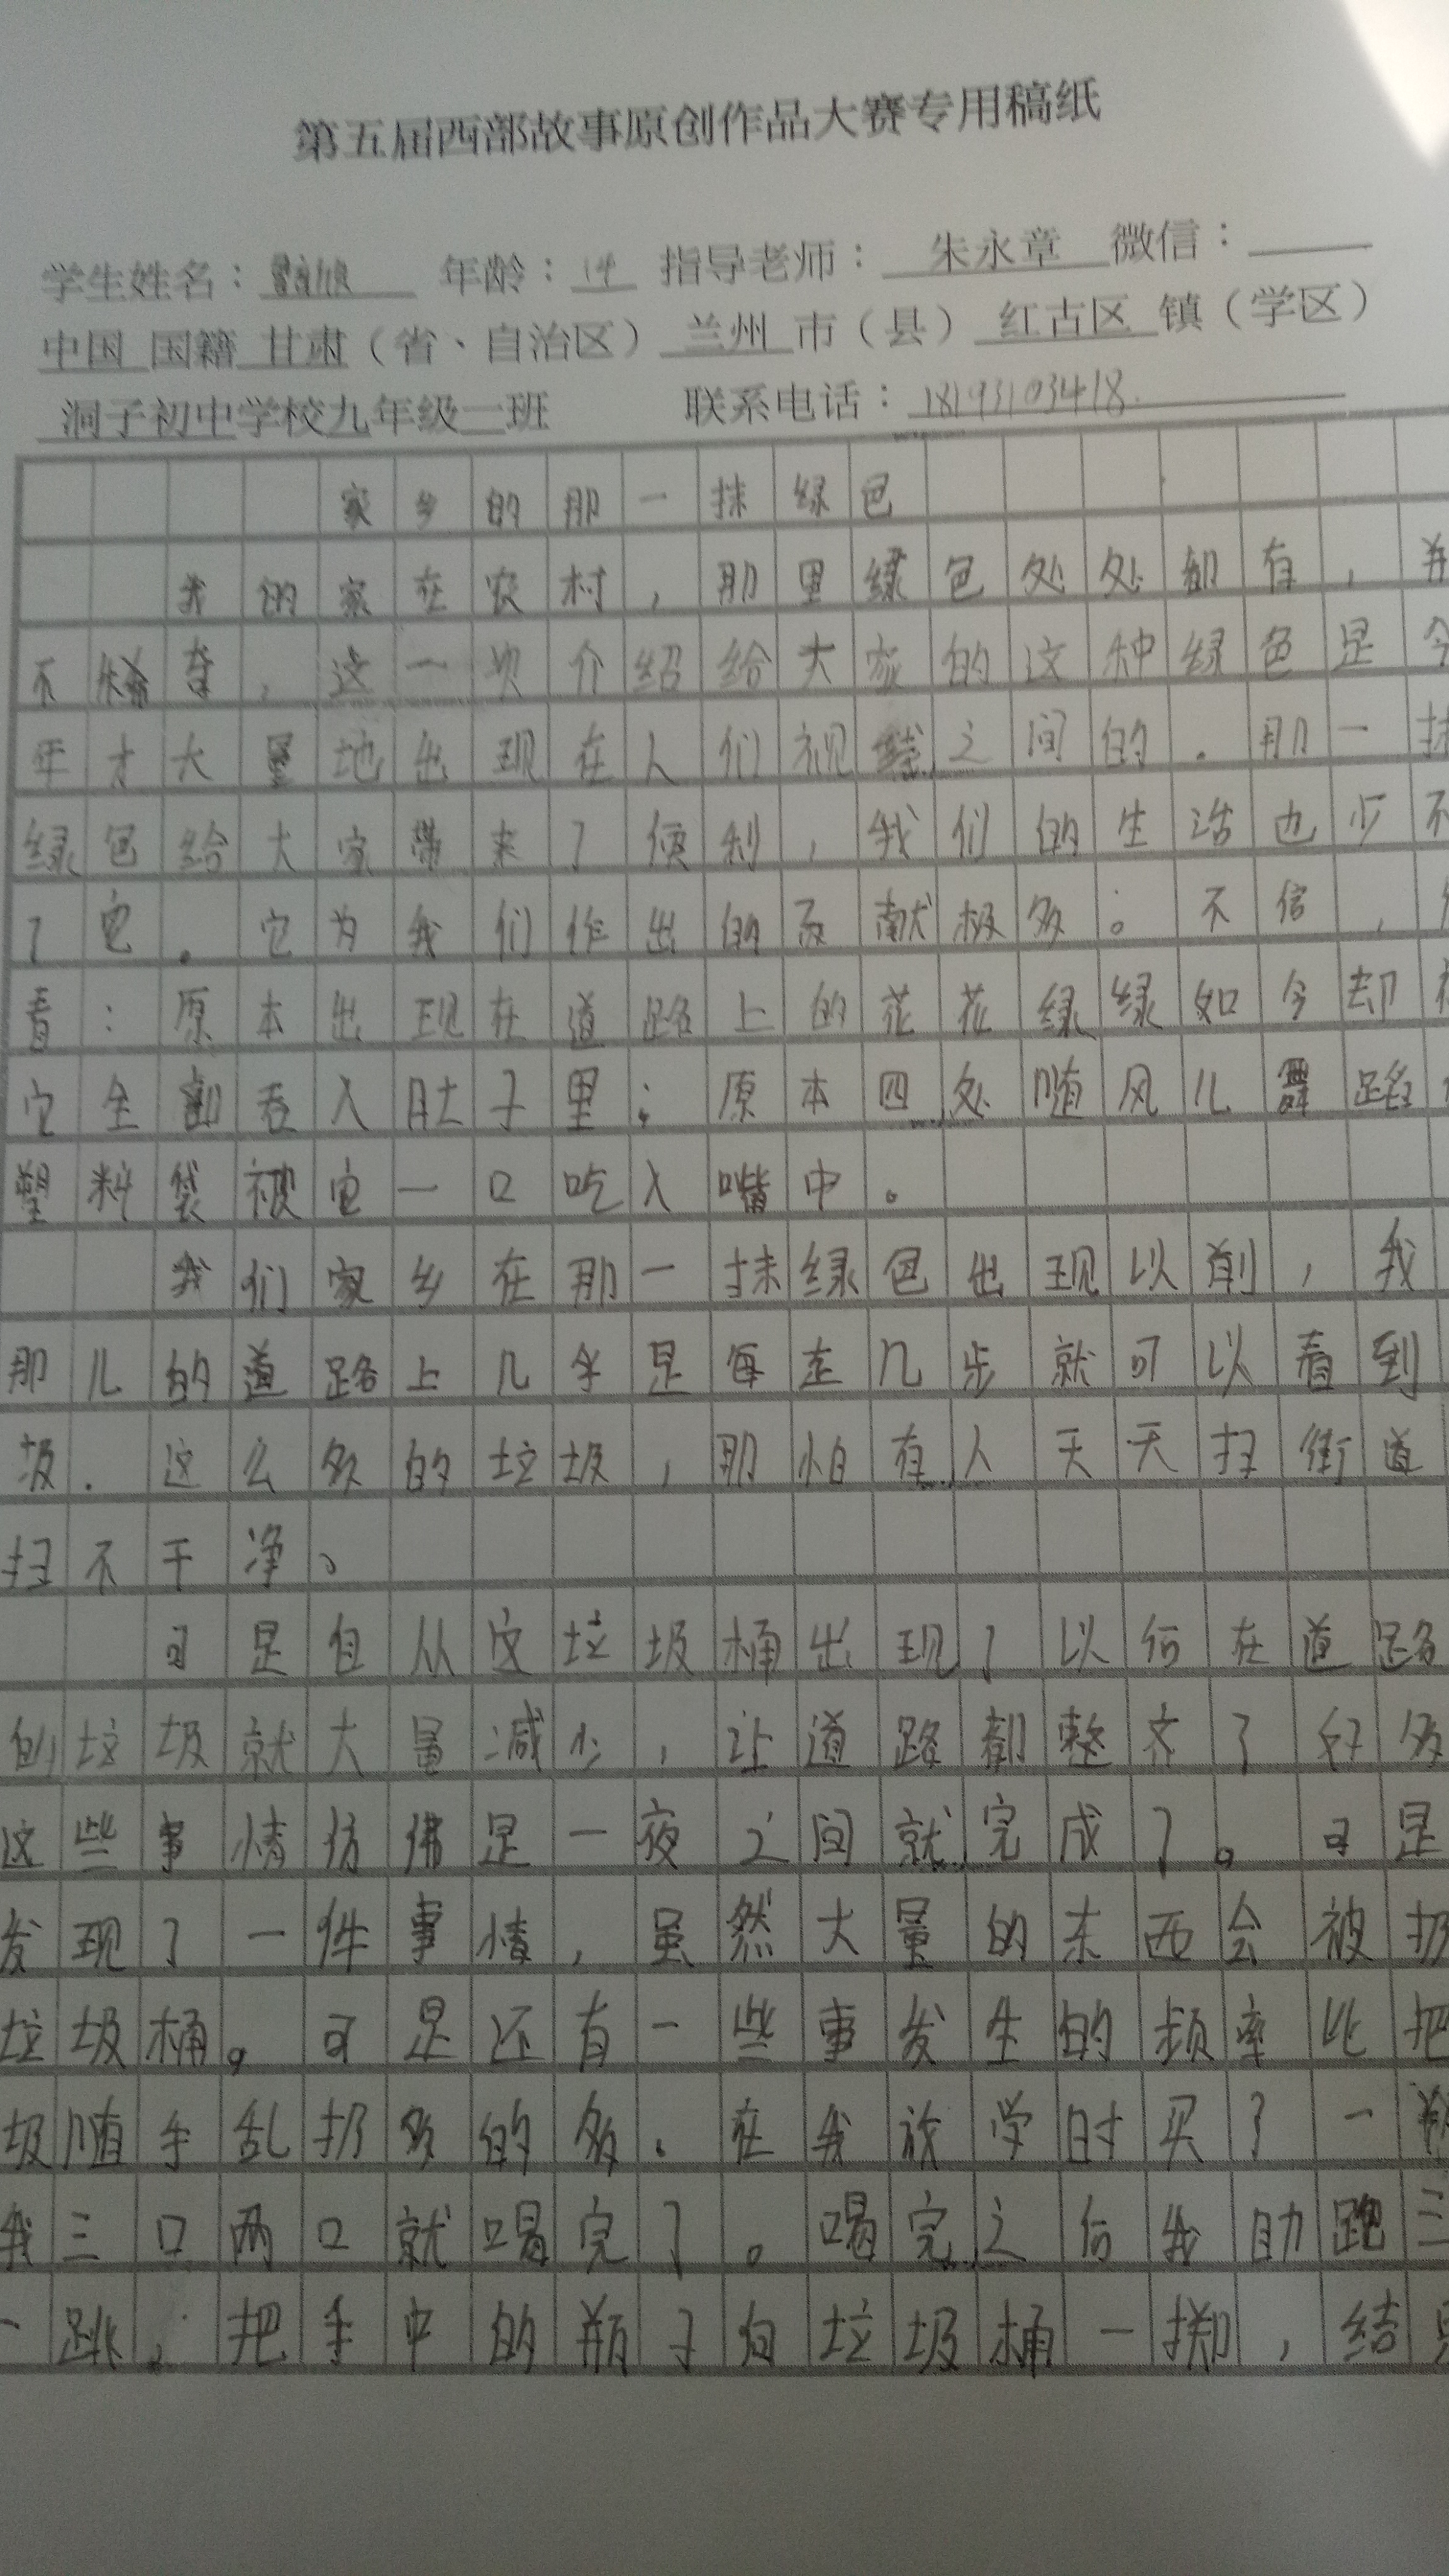 第五届西部故事原创作品大赛专用稿纸
学生姓名： 年龄：14 指导老师：朱永章 微信：
中国 国籍 甘肃（省、自治区） 兰州 市（县） 红古区 镇（学区）
洞子初中学校九年级一班 联系电话：18193103418
家乡的那一抹绿色
我的家在农村，那里绿色处处都有，并
不稀奇，这一次介绍给大家的这种绿色是今
年才大量地出现在人们视线之间的。那一抹
绿色给大家带来了便利，我们的生活也少不
了它。它为我们作出的贡献极多。不信，
看：原本出现在道路上的花花绿绿如今却被
它全部吞入肚子里；原本四处随风儿舞蹈
塑料袋被它一口吃入嘴中。
我们家乡在那一抹绿色出现以前，我
那儿的道路上几乎是每走几步就可以看到
圾．这么多的垃圾，那怕有人天天扫街道
扫不干净。
可是自从这垃圾桶出现了以何在道路
的垃圾就大量减少，让道路都整齐了好多
这些事情仿佛是一夜之间就完成了。可是
发现了一件事情，虽然大量的东西会被扔
垃圾桶。可是还有一些事发生的频率比把
圾随手乱扔多的多．在我放学时买了一瓶
我三口两口就喝完了。喝完之何我助跑三
一跳，把手中的瓶子向垃圾桶一掷，结果